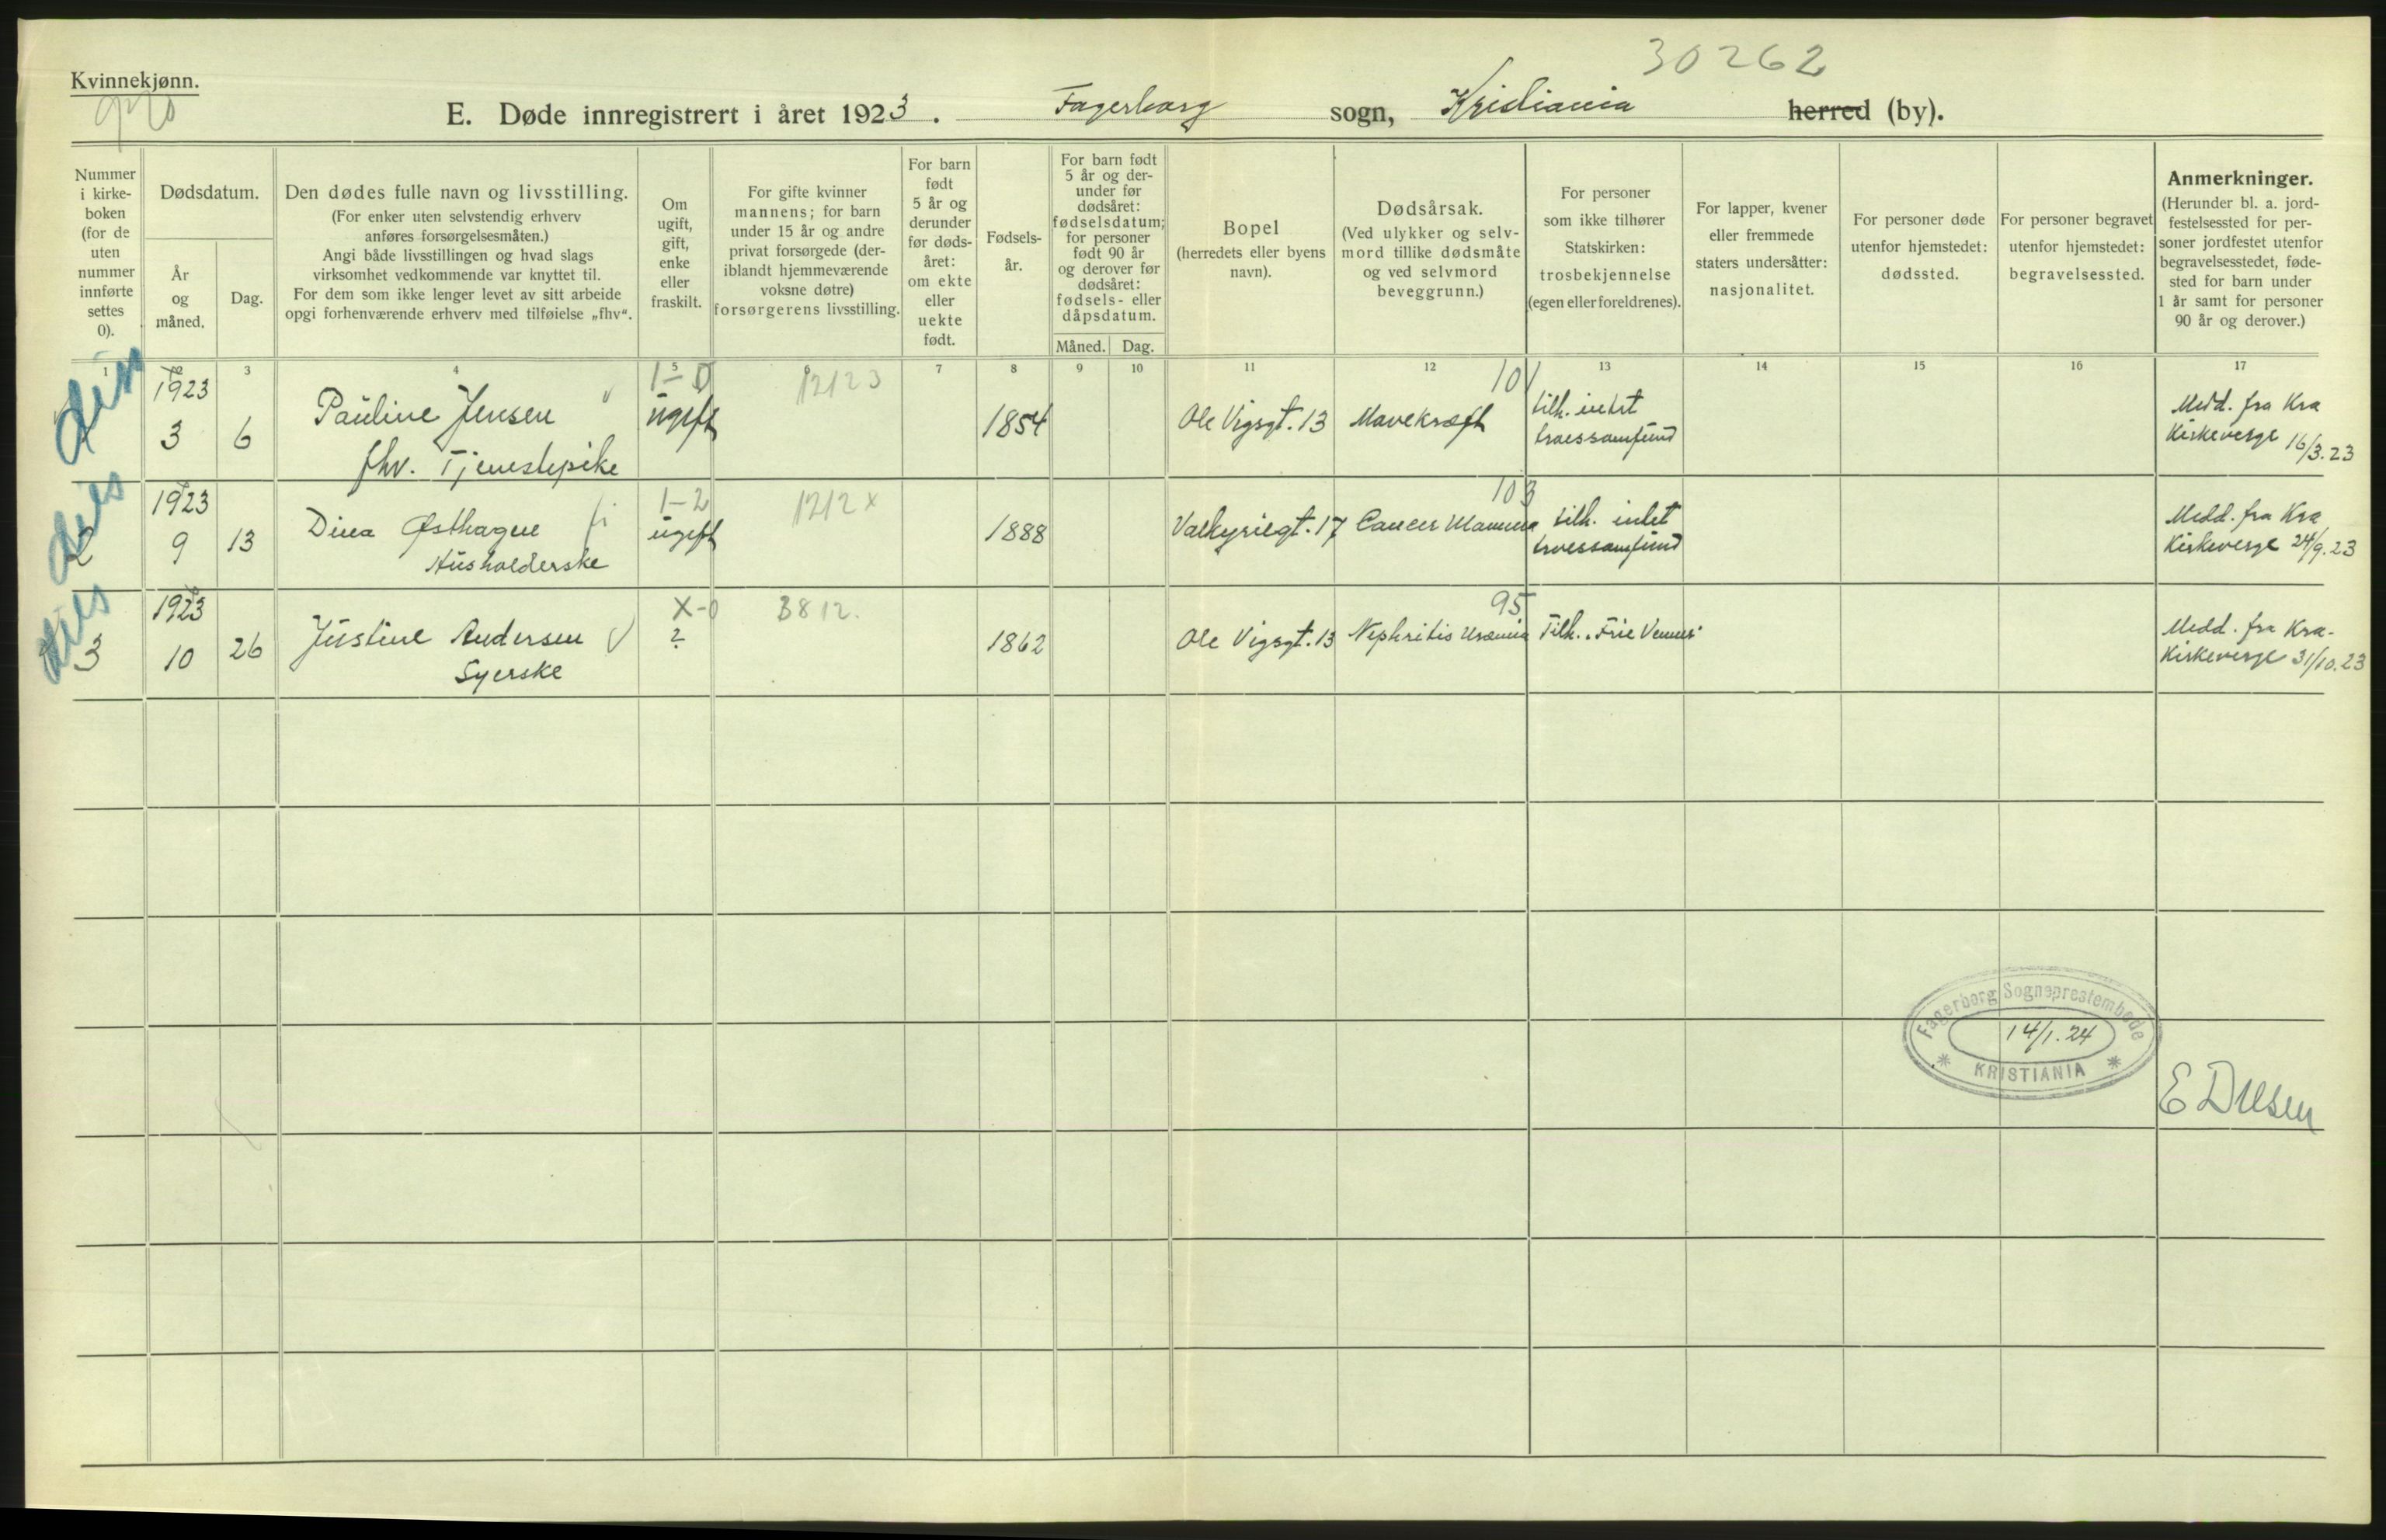 30262
Kvinnekjønn.
E. Døde innregistrert i året 1923. Fagerborg sogn, Kristiania herred (by).
Nummer i kirkeboken (for de uten nummer innførte settes 0).
Dødsdatum.
År og måned.
Dag.
Den dødes fulle navn og livsstilling.
(For enker uten selvstendig erhverv
anføres forsørgelsesmåten.)
Angi både livsstillingen og hvad slags
virksomhet vedkommende var knyttet til.
For dem som ikke lenger levet av sitt arbeide
opgi forhenværende erhverv med tilføielse „fhv“.
Om ugift, gift, enke eller fraskilt.
For gifte kvinner
mannens; for barn
under 15 år og andre
privat forsørgede (der-
iblandt hjemmeværende
voksne døtre)
forsørgerens livsstilling.
For barn
født
5 år og
derunder
før døds-
året:
om ekte
eller
uekte
født.
Fødsels-
år.
For barn født
5 år og der-
under før
dødsåret:
fødselsdatum;
for personer
født 90 år
og derover før
dødsåret:
fødsels- eller
dåpsdatum.
Måned. Dag.
Bopel
(herredets eller byens
navn).
Dødsårsak.
(Ved ulykker og selv-
mord tillike dødsmåte
og ved selvmord
beveggrunn.)
For personer
som ikke tilhører
Statskirken:
trosbekjennelse
(egen eller foreldrenes).
For lapper, kvener
eller fremmede
staters undersåtter:
nasjonalitet.
For personer døde
utenfor hjemstedet:
dødssted.
For personer begravet
utenfor hjemstedet:
begravelsessted.
Anmerkninger.
(Herunder bl. a. jord-
festelsessted for per-
soner jordfestet utenfor
begravelsesstedet, føde-
sted for barn under
1 år samt for personer
90 år og derover.)
1 2 3 4 5 6 7 8 9 10 11 12 13 14 15 16 17
1923 1-0 12123 101
3 6 Pauline Jensen ugift 1854 Ole Vigsgt. 13 Mavekræft tilh. intet Medd. fra Kra
fhv. Tjenestepike troessamfund Kirkeverge 16/3.23
1923 1-2 1212x 103
2 9 13 Dina Østhagen ugift 1888 Valkyriegt. 17 Cancer Mamma tilh. intet Medd. fra Kra
Husholderske troessamfund Kirkeverge 24/9.23
1923 X-0 3812. 95
3 10 26 Justine Andersen ? 1862 Ole Vigsgt. 13 Nephritis Uræmia Tilh. „Frie Venner" Medd. fra Kra.
Syerske Kirkeverge 31/10.23
Fagerborg Sogneprestembede
14/1.24
KRISTIANIA